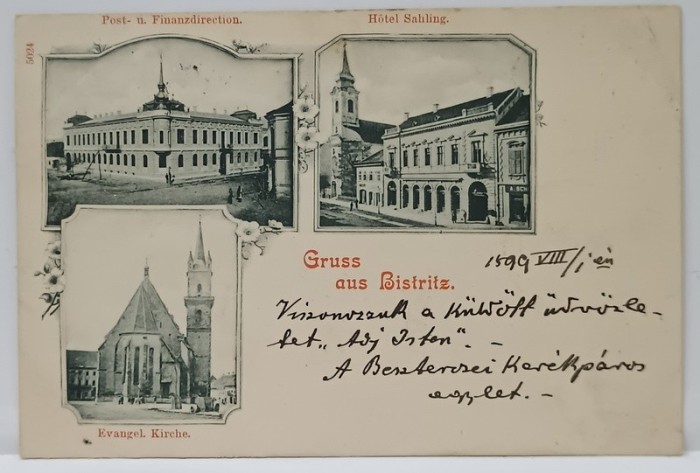 Post- u. Finanzdirection.
Hôtel Sahling.
5024
Gruss
aus Bistritz.
1899 VIII/1 én
Viszonozzuk a küldött üdvözle-
tet „Adj Isten". -
A Beszterczei Kerékpáros
egylet. -
Evangel. Kirche.